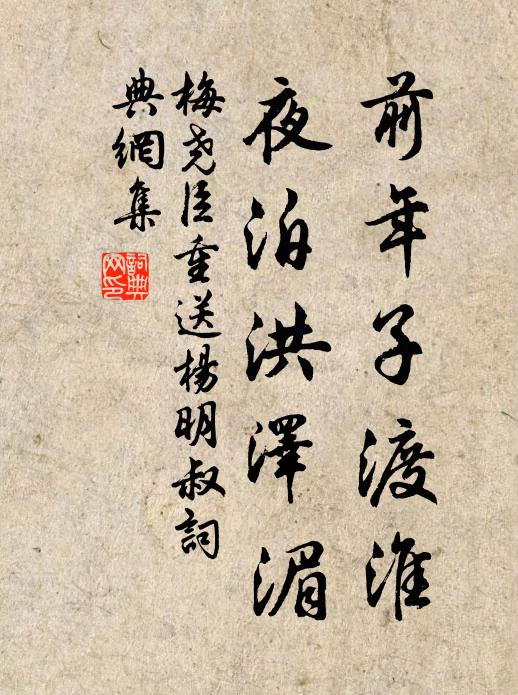 前年子渡淮
夜泊洪澤湄
梅尧臣重送楊明叔詞
典網集
詞典網印